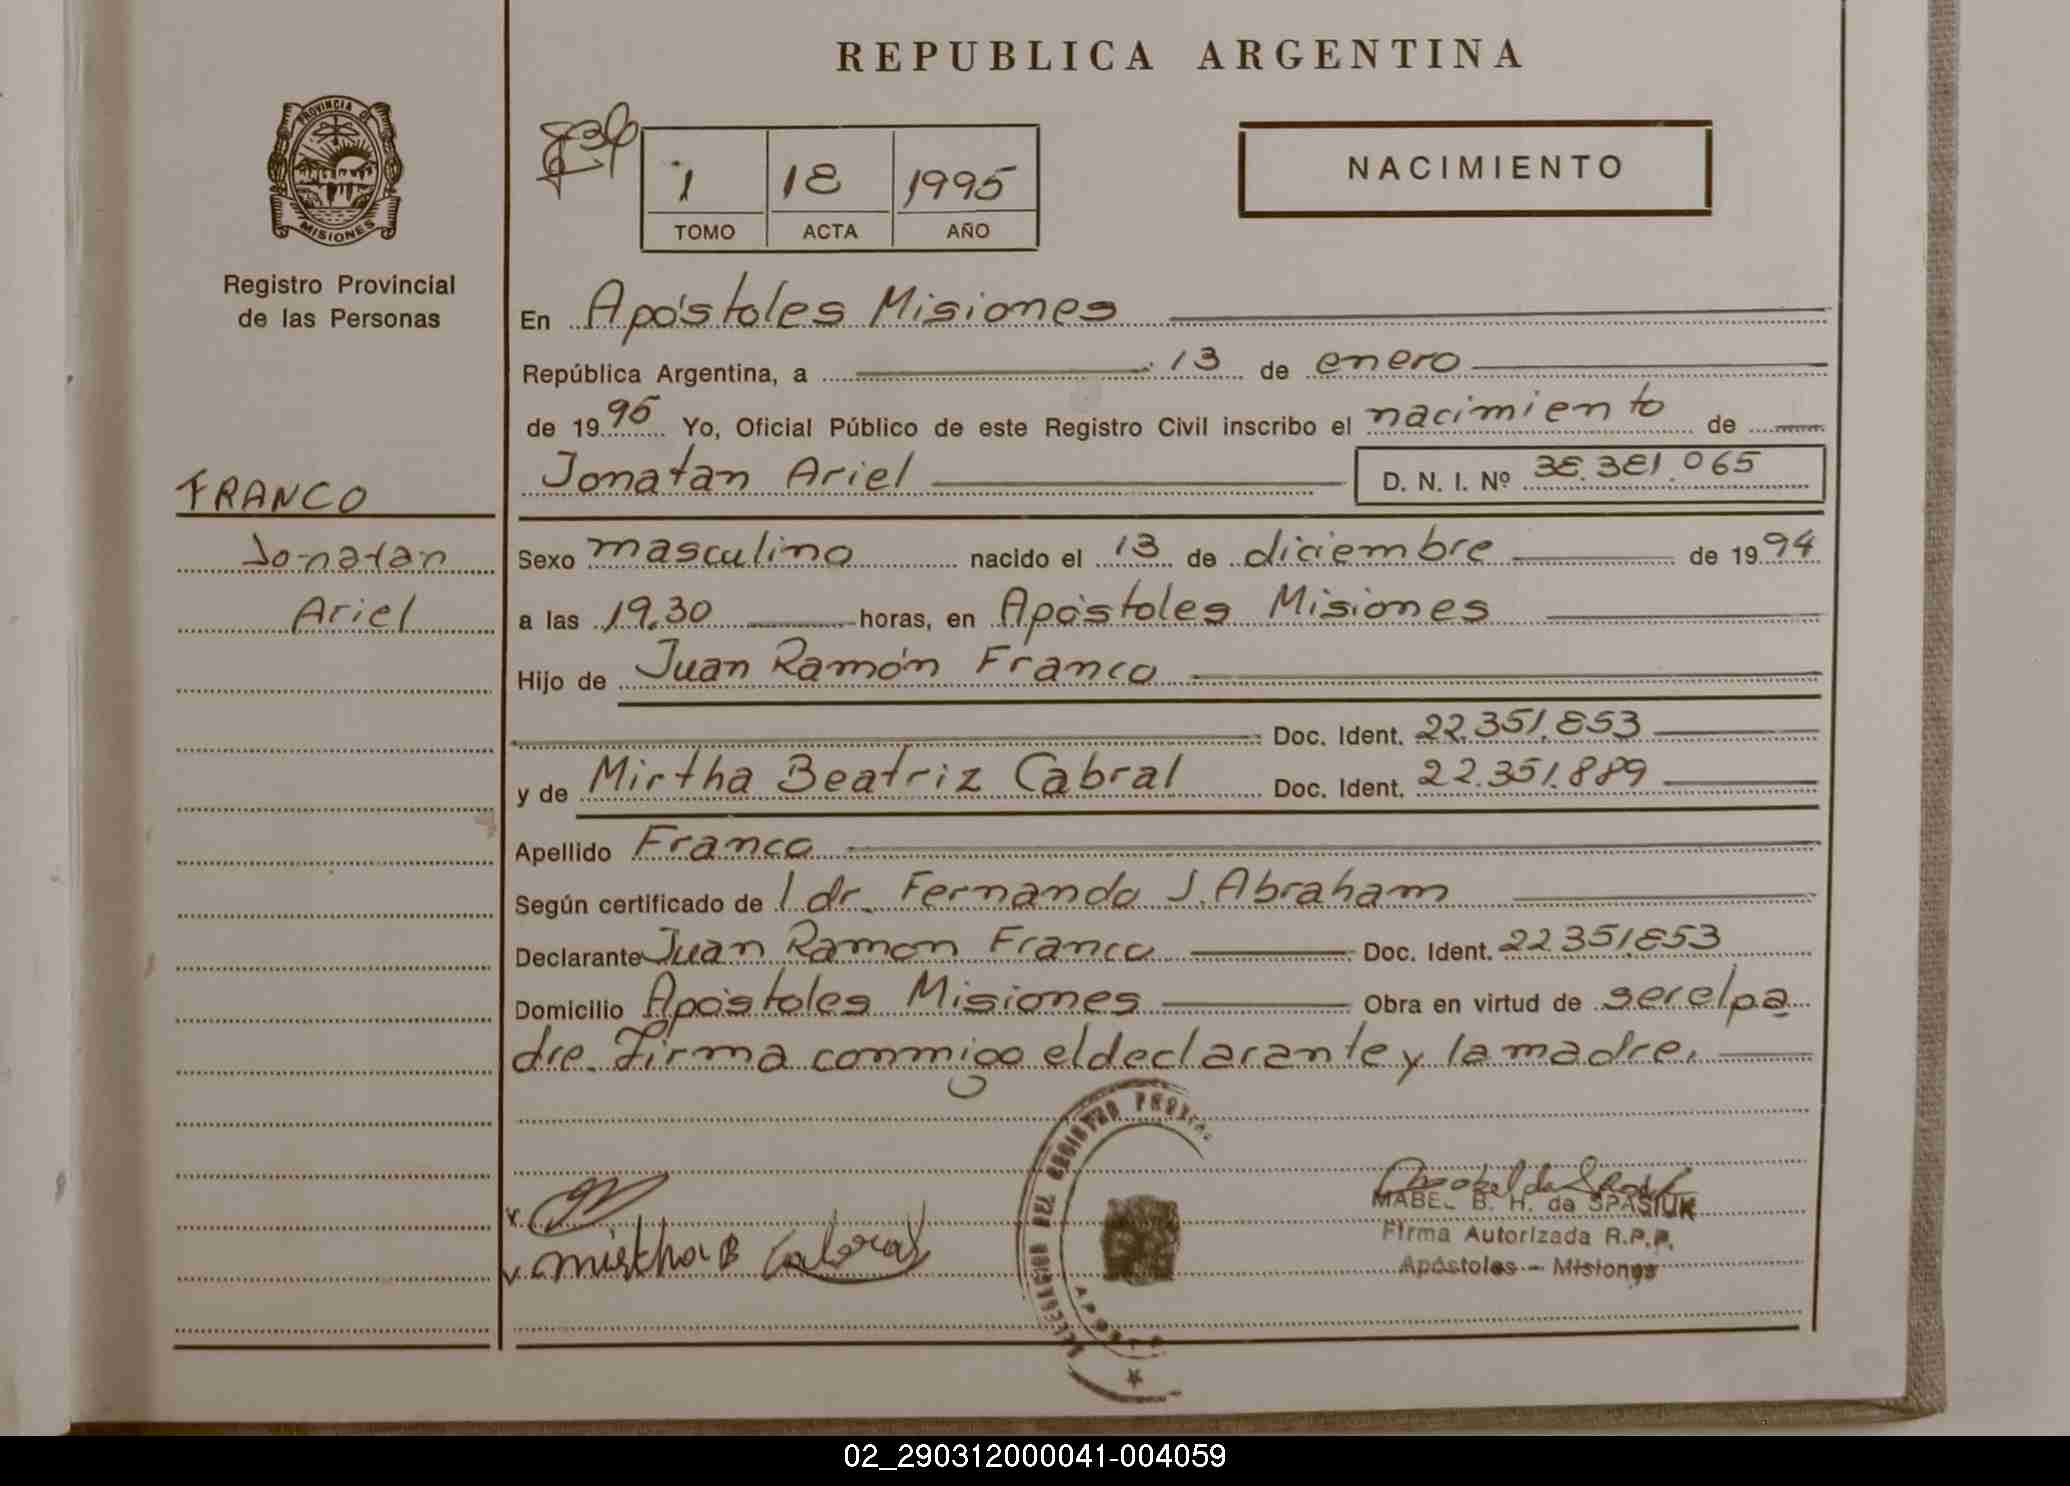 REPUBLICA ARGENTINA
PROVINCIA DE
MISIONES
Registro Provincial
de las Personas
1 18 1995
TOMO ACTA AÑO
NACIMIENTO
En Apóstoles Misiones
República Argentina, a 13 de enero
de 1995 Yo, Oficial Público de este Registro Civil inscribo el nacimiento de
Jonatan Ariel D. N. I. Nº 38.381.065
FRANCO
Jonatan
Ariel
Sexo masculino nacido el 13 de diciembre de 1994
a las 19.30 horas, en Apóstoles Misiones
Hijo de Juan Ramón Franco
Doc. Ident. 22.351.853
y de Mirtha Beatriz Cabral Doc. Ident. 22.351.889
Apellido Franco
Según certificado de l dr. Fernando J. Abraham
Declarante Juan Ramon Franco Doc. Ident. 22351.853
Domicilio Apóstoles Misiones Obra en virtud de ser el pa
dre. Firma conmigo el declarante y la madre.
Mirtha B Cabral
MABEL B. H. de SPASIUK
Firma Autorizada R.P.P.
Apóstoles - Misiones
02_290312000041-004059